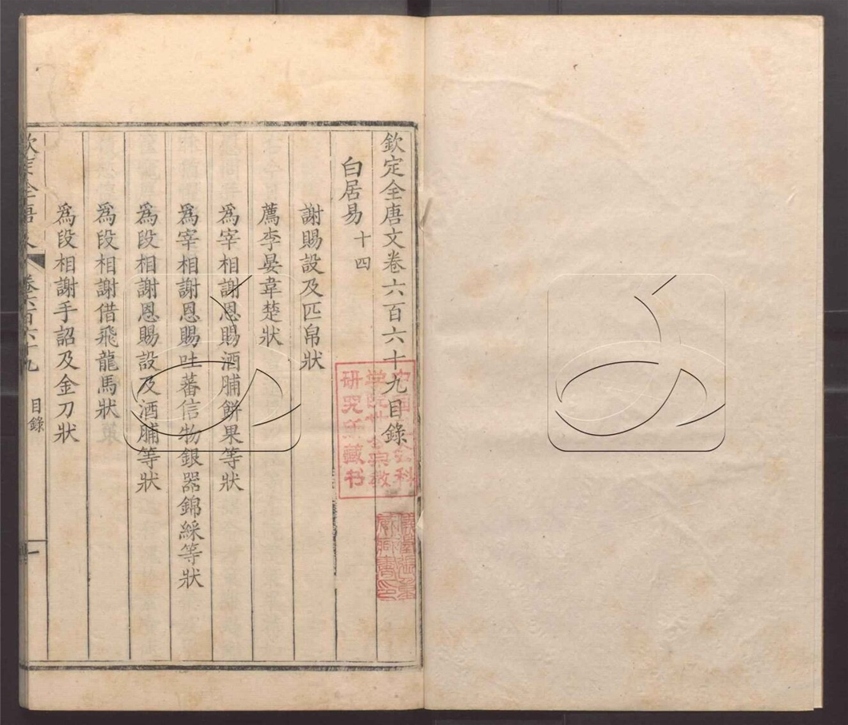 欽定全唐文卷六百六十九目錄
白居易 十四
謝賜設及匹帛狀
薦李晏韋楚狀
爲宰相謝恩賜酒脯餅果等狀
爲宰相謝恩賜吐蕃信物銀器錦綵等狀
爲段相謝恩賜設及酒脯等狀
爲段相謝借飛龍馬狀
爲段相謝手詔及金刀狀
欽定全唐文 卷六百六十九 目錄 一
研究所藏书